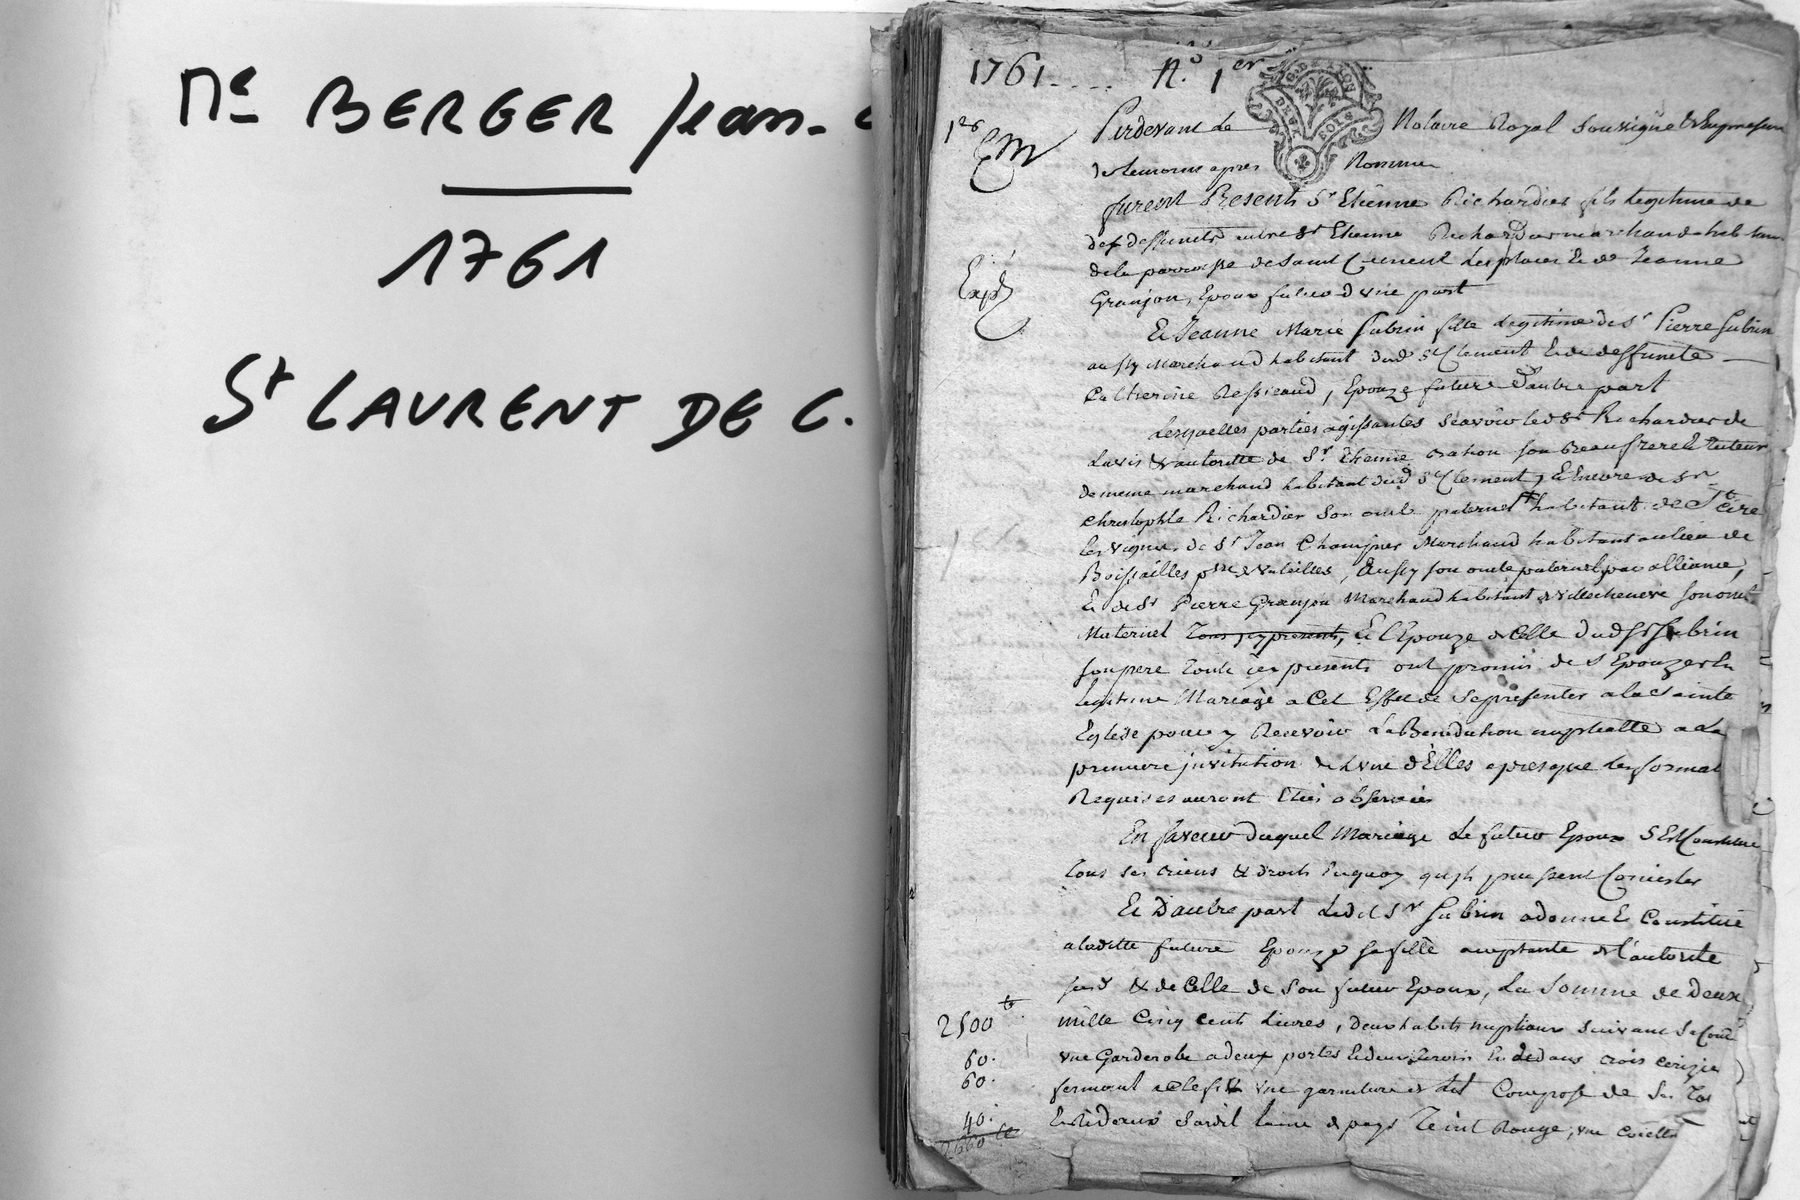 Me BERGER Jean-C
1761
St LAURENT DE C.
1761.... N.o 1er
1er
Em
Expd
Pardevant Le Notaire Royal soussigné & En presence
des temoins apres Nommes
furent Presents Sr Etienne Richardier fils legitime de
des deffunts autre Sr Etienne Richardier marchand habitant
de la parroisse de Saint Clement Les places Et de Jeanne
Granjon, Epoux futur d'une part
Et Jeanne Marie Subrin fille Legitime de Sr Pierre Subrin
aussy Marchand habitant dud St Clement Et de deffuncte
Catherine Ressicaud, Epouze future d'autre part
Lesquelles parties agissantes Scavoir led Sr Richardier de
Lavis & autoritté de Sr Etienne son Beaufrere Et Tuteur
de meme marchand habitant dud St Clement, Encore de Sr
Christophle Richardier Son oncle paternel habitant de St Cire
les vignes de Sr Jean Marchand habitant au lieu de
Boissailles psse de Valeilles, Aussy son oncle paternel par alliance,
Et de Sr Pierre Granjon Marchand habitant de villecheneve son oncle
Maternel tous icy presents, Et L'Epouze de Celle dud Sr Subrin
son pere toute ces presents ont promis de S'Epouzer En
legitime Mariage a Cet Effet de Se presenter a la Sainte
Eglise pour y Recevoir La Benediction nuptialle a La
premiere jnvitation de L'une d'Elles apres que Les formal
Requises auront Etés observées
En faveur duquel Mariage Le futur Epoux S'Est Constitué
tous ses biens & droits En quoy qu'ils puissent Consister
Et D'autre part Ledit Sr Subrin a donné Et Constitué
a laditte future Epouze sa fille acceptante de l'autorité
susd & de Celle de Son futur Epoux, La Somme de Deux
2500 tt
mille Cinq Cents Livres, deux habits nuptiaux Suivant Sa Cond
60.
vne Garderobe a deux portes En dedans bois Cerizier
60.
fermant a Clef & vne garniture de Lit Compose de Ses
40.
Et Rideaux Sardil laine de pays Teint Rouge, vne
2660 tt